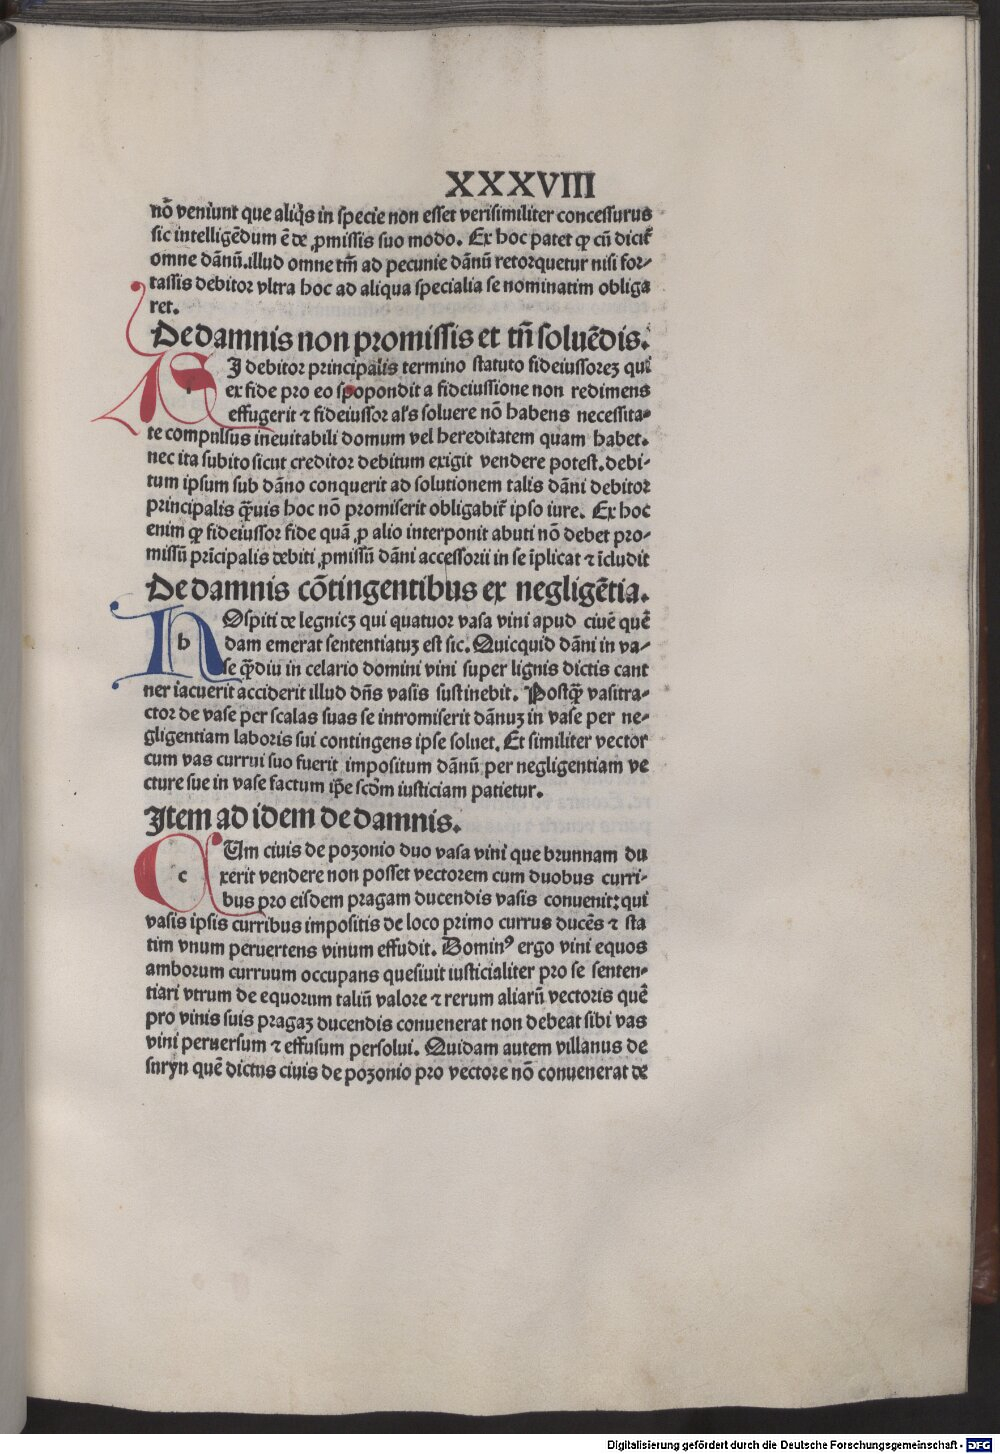 XXXVIII
nō veniunt que aliq̇s in specie non esset verisimiliter concessurus
sic intelligēdum ē de ꝓmissis suo modo. Ex hoc patet ꝙ cū dicit̄
omne dānū.illud omne tm̄ ad pecunie dānū retorquetur nisi for⸗
tassis debitor vltra hoc ad aliqua specialia se nominatim obliga
ret.
De damnis non promissis et tn̄ soluēdis.
SI debitor principalis termino statuto fideiussoreꝫ qui
ex fide pro eo spopondit a fideiussione non redimens
effugerit ⁊ fideiussor al's soluere nō habens necessita⸗
te compulsus ineuitabili domum vel hereditatem quam habet.
nec ita subito sicut creditor debitum exigit vendere potest.debi⸗
tum ipsum sub dāno conquerit ad solutionem talis dāni debitor
principalis q̄uis hoc nō promiserit obligabit̄ ipso iure. Ex hoc
enim ꝙ fideiussor fide quā ꝓ alio interponit abuti nō debet pro⸗
missū prīcipalis debiti ꝓmissū dāni accessorii in se īplicat ⁊ īcludit
De damnis cōtingentibus ex negligētia.
b
HOspiti de legnicꝫ qui quatuor vasa vini apud ciuē quē
dam emerat sententiatuꝫ est sic. Quicquid dāni in va⸗
se q̄diu in celario domini vini super lignis dictis cant
ner iacuerit acciderit illud dn̄s vasis sustinebit. Postq̄ vasitra⸗
ctor de vase per scalas suas se intromiserit dānuꝫ in vase per ne⸗
gligentiam laboris sui contingens ipse soluet. Et similiter vector
cum vas currui suo fuerit impositum dānū per negligentiam ve
cture sue in vase factum ip̄e scd̄m iusticiam patietur.
Item ad idem de damnis.
c
CUm ciuis de poꝫonio duo vasa vini que brunnam du
xerit vendere non posset vectorem cum duobus curri⸗
bus pro eisdem pragam ducendis vasis conuenit:qui
vasis ipsis curribus impositis de loco primo currus ducēs ⁊ sta
tim vnum peruertens vinum effudit. Dominꝰ ergo vini equos
amborum curruum occupans quesiuit iusticialiter pro se senten⸗
tiari vtrum de equorum taliū valore ⁊ rerum aliarū vectoris quē
pro vinis suis pragaꝫ ducendis conuenerat non debeat sibi vas
vini peruersum ⁊ effusum persolui. Quidam autem villanus de
snryn quē dictus ciuis de poꝫonio pro vectore nō conuenerat de
Digitalisierung gefördert durch die Deutsche Forschungsgemeinschaft - DFG